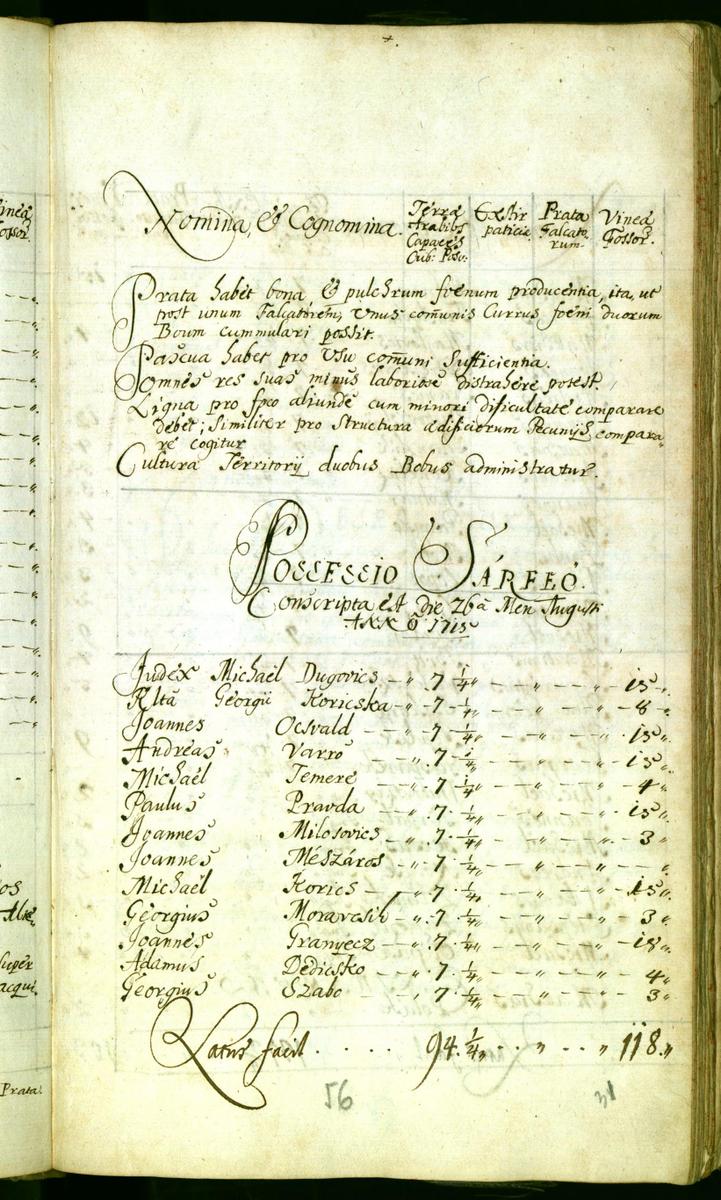 Nomina, & Cognomina. Terræ Arabiles Capaces Cub: Poson: Extirpaticiæ Prata Falcatorum. Vineæ Fossor.
Prata habet bona, & pulchrum fœnum producentia, ita, ut
post unum Falcatorem, Unus com̃unis Currus fœni duorum
Boum cummulari possit.
Pascua habet pro Usu com̃uni Sufficientia.
Omnes res suas minus laboriose distrahere potest.
Ligna pro foco aliunde cum minori dificultate comparare
debet; Similiter pro Structura ædificiorum Pecunijs compara-
re cogitur
Cultura Territorij duobus Bobus administratur.
Possessio Sárfeő.
Conscripta est die 26ª Men Augusti
Anno 1715
Judex Michaël Dugovics - „ 7 1/4 „ - „ - „ 15 „
Rltã Georgii Koricska - „ 7 1/4 „ - „ - „ 8 „
Joannes Ocsvald - „ 7 1/4 „ - „ - „ 15 „
Andreas Varro - „ 7 1/4 „ - „ - „ 15 „
Michaël Temere - „ 7 1/4 „ - „ - „ 4 „
Paulus Pravda - „ 7 1/4 „ - „ - „ 15 „
Joannes Milosovics - „ 7 1/4 „ - „ - „ 3 „
Joannes Mészáros - „ 7 1/4 „ - „ - „ - „
Michaël Korics - „ 7 1/4 „ - „ - „ 15 „
Georgius Moravcsik - „ 7 1/4 „ - „ - „ 3 „
Joannes Granyecz - „ 7 1/4 „ - „ - „ 18 „
Adamus Dedicsko - „ 7 1/4 „ - „ - „ 4 „
Georgius Szabo - „ 7 1/4 „ - „ - „ 3 „
Latus facit . . . . 94 1/4 „ . . „ . . „ 118 „
56
31